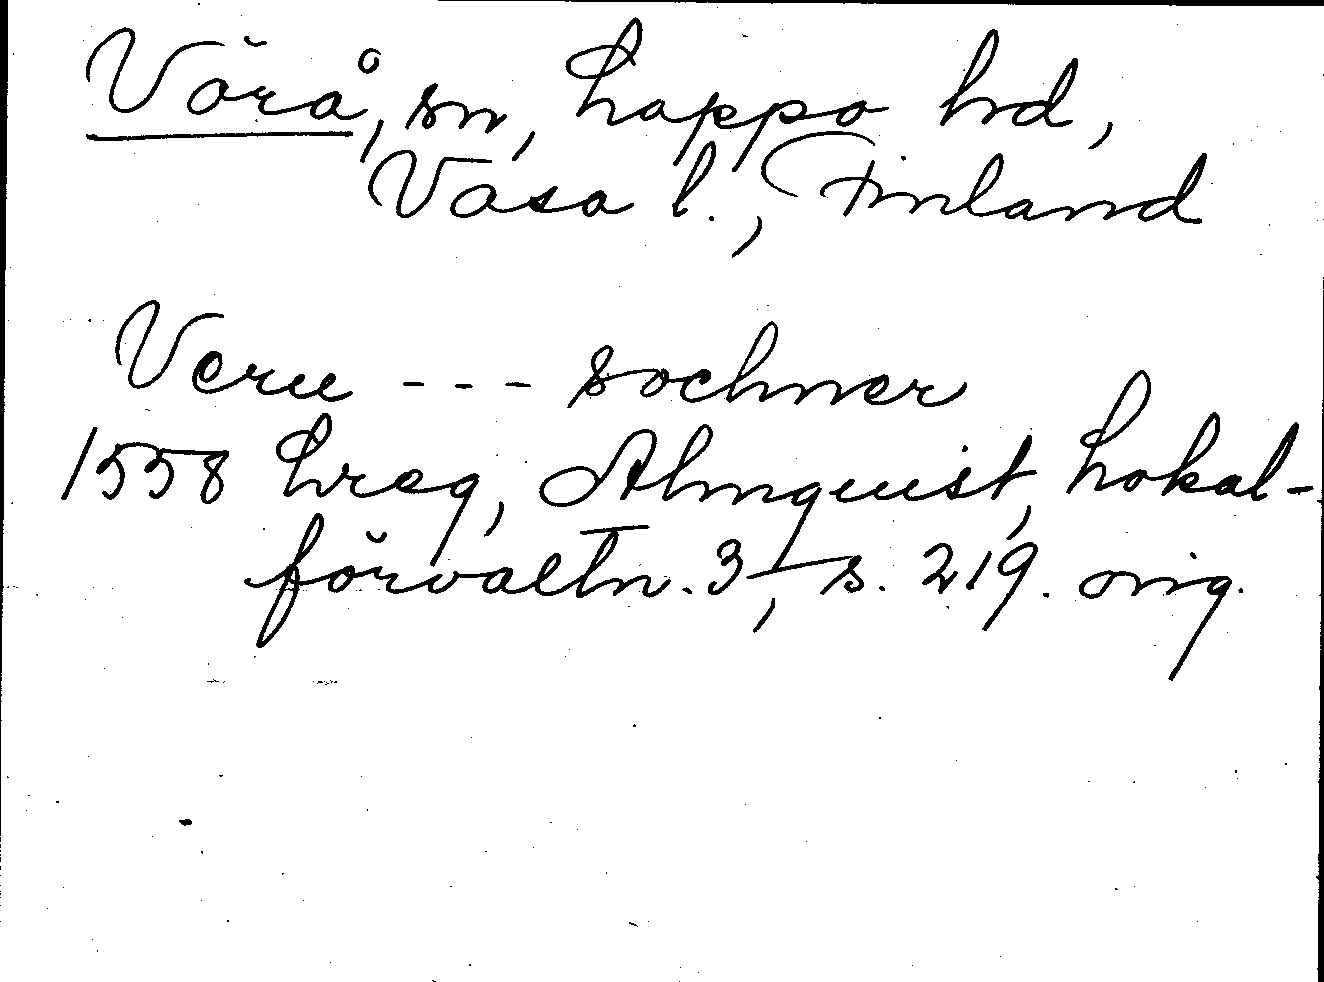 Vörå, sn, Lappo hd,
Vasa l., Finland
Veru --- sochner
1558 Lreg, Almquist, Lokal-
förvaltn. 3, s. 219. orig.